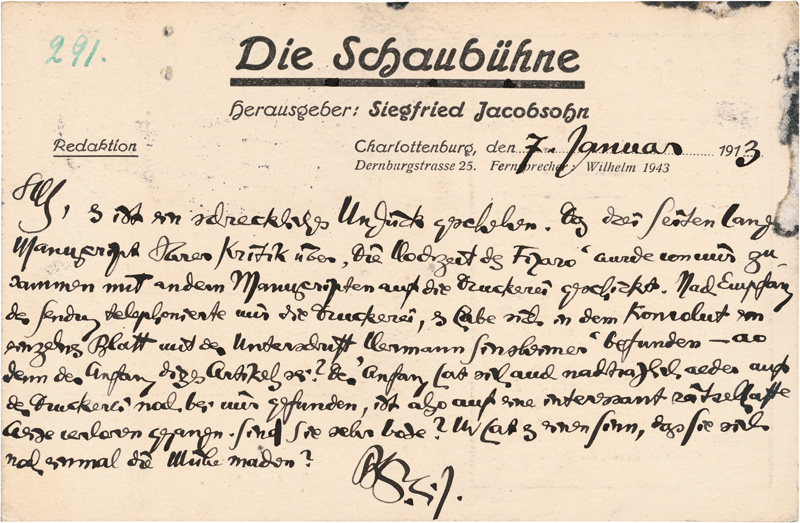 291.
Die Schaubühne
Herausgeber: Siegfried Jacobsohn
Redaktion
Charlottenburg, den 7. Januar 1913
Dernburgstrasse 25. Fernsprecher: Wilhelm 1943
es ist ein schreckliches Unglück geschehen. Das drei Seiten lange
Manuscript Ihrer Kritik über „Die Hochzeit des Figaro“ wurde von mir zu
sammen mit andern Manuscripten auf die Druckerei geschickt. Nach Empfang
der Sendung telephonierte mir die Druckerei, es habe sich in dem Konvolut ein
einzelnes Blatt mit der Unterschrift „Hermann Sinsheimer“ befunden — wo
denn der Anfang dieses Artikels sei? Der Anfang hat sich auch nachträglich weder auf
der Druckerei noch bei mir gefunden, ist also auf eine interessant rätselhafte
Weise verloren gegangen. Sind Sie sehr böse? Und hat es einen Sinn, dass Sie sich
noch einmal die Mühe machen?